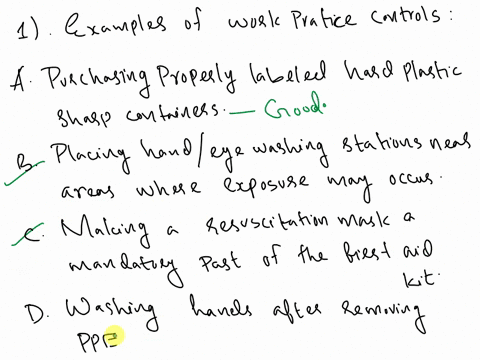 1). Examples of work Pratice controls:
A. Purchasing Properly labeled hard plastic
sharp containers. — Good.
B. Placing hand/eye washing stations near
areas where exposure may occur.
C. Making a resuscitation mask a
mandatory Part of the first aid
kit.
D. Washing hands after removing
PPE